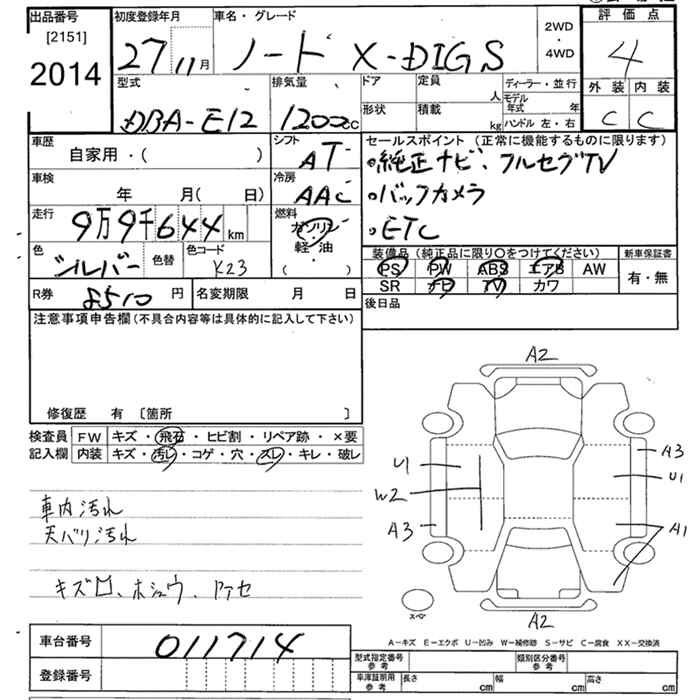 出品番号
[2151]
2014
初度登録年月
27 11月
車名・グレード
ノート X-DIGS
2WD
・
4WD
評価点
4
外装 内装
C C
型式
DBA-E12
排気量
1200cc
ドア
形状
定員
人
積載
kg
ディーラー・並行
モデル年式 年
ハンドル 左・右
車歴
自家用・( )
シフト
AT
セールスポイント(正常に機能するものに限ります)
・純正ナビ、フルセグTV
・バックカメラ
・ETC
車検
年 月( 日)
冷房
AAC
走行
9万9千644km
燃料
ガソリン
・
軽・油
( )
色
シルバー
色替
色コード
K23
装備品(純正品に限り○をつけてください)
PS PW ABS エアB AW
SR ナビ TV カワ
新車保証書
有・無
R券
8510円
名変期限 月 日
後日品
注意事項申告欄(不具合内容等は具体的に記入して下さい)
修復歴 有 〔箇所 〕
検査員 FW キズ・飛石・ヒビ割・リペア跡・×要
記入欄 内装 キズ・汚レ・コゲ・穴・スレ・キレ・破レ
車内汚れ
天バリ汚れ
キズ凹、ホシュウ、アセ
A2
U1
W2
A3
A3
U1
A1
A2
スペア
A-キズ E-エクボ U-凹み W-補修跡 S-サビ C-腐食 XX-交換済
車台番号
011714
登録番号
型式指定番号 参考
類別区分番号 参考
車庫証明用 参考
長さ cm
幅 cm
高さ cm